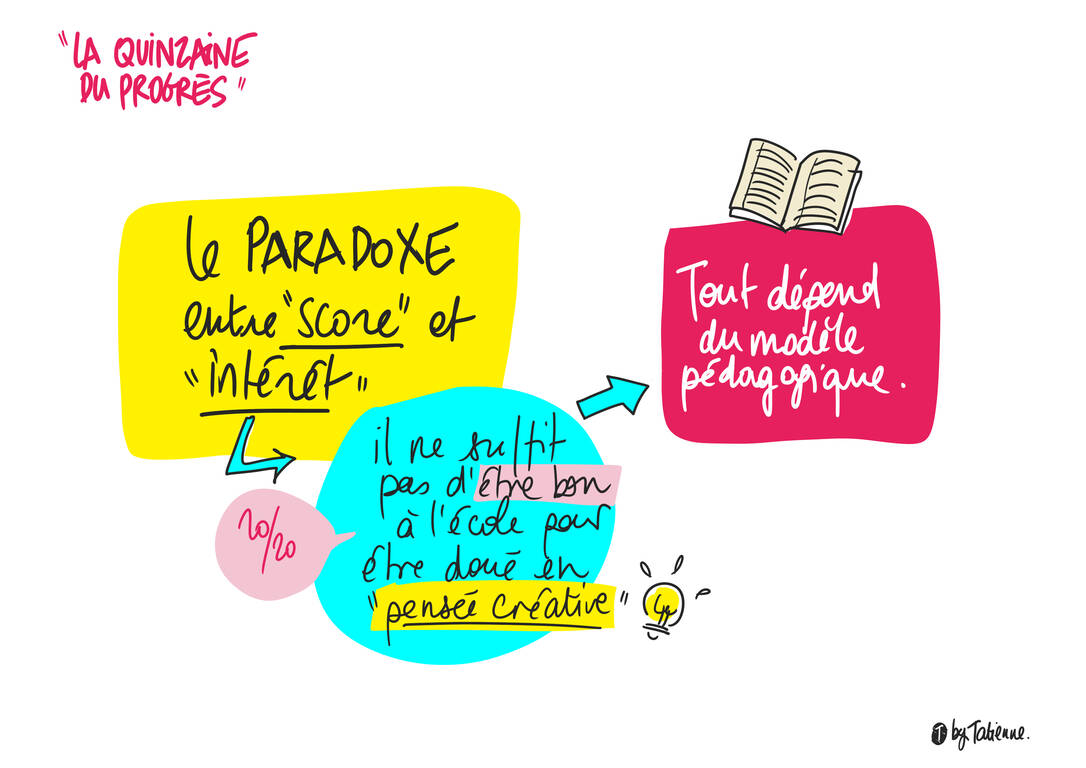 "LA QUINZAINE
DU PROGRÈS"
le PARADOXE
entre "score" et
"intérêt"
il ne suffit
pas d'être bon
à l'école pour
être doué en
"pensée créative"
20/20
Tout dépend
du modèle
pédagogique.
T by Tatienne.